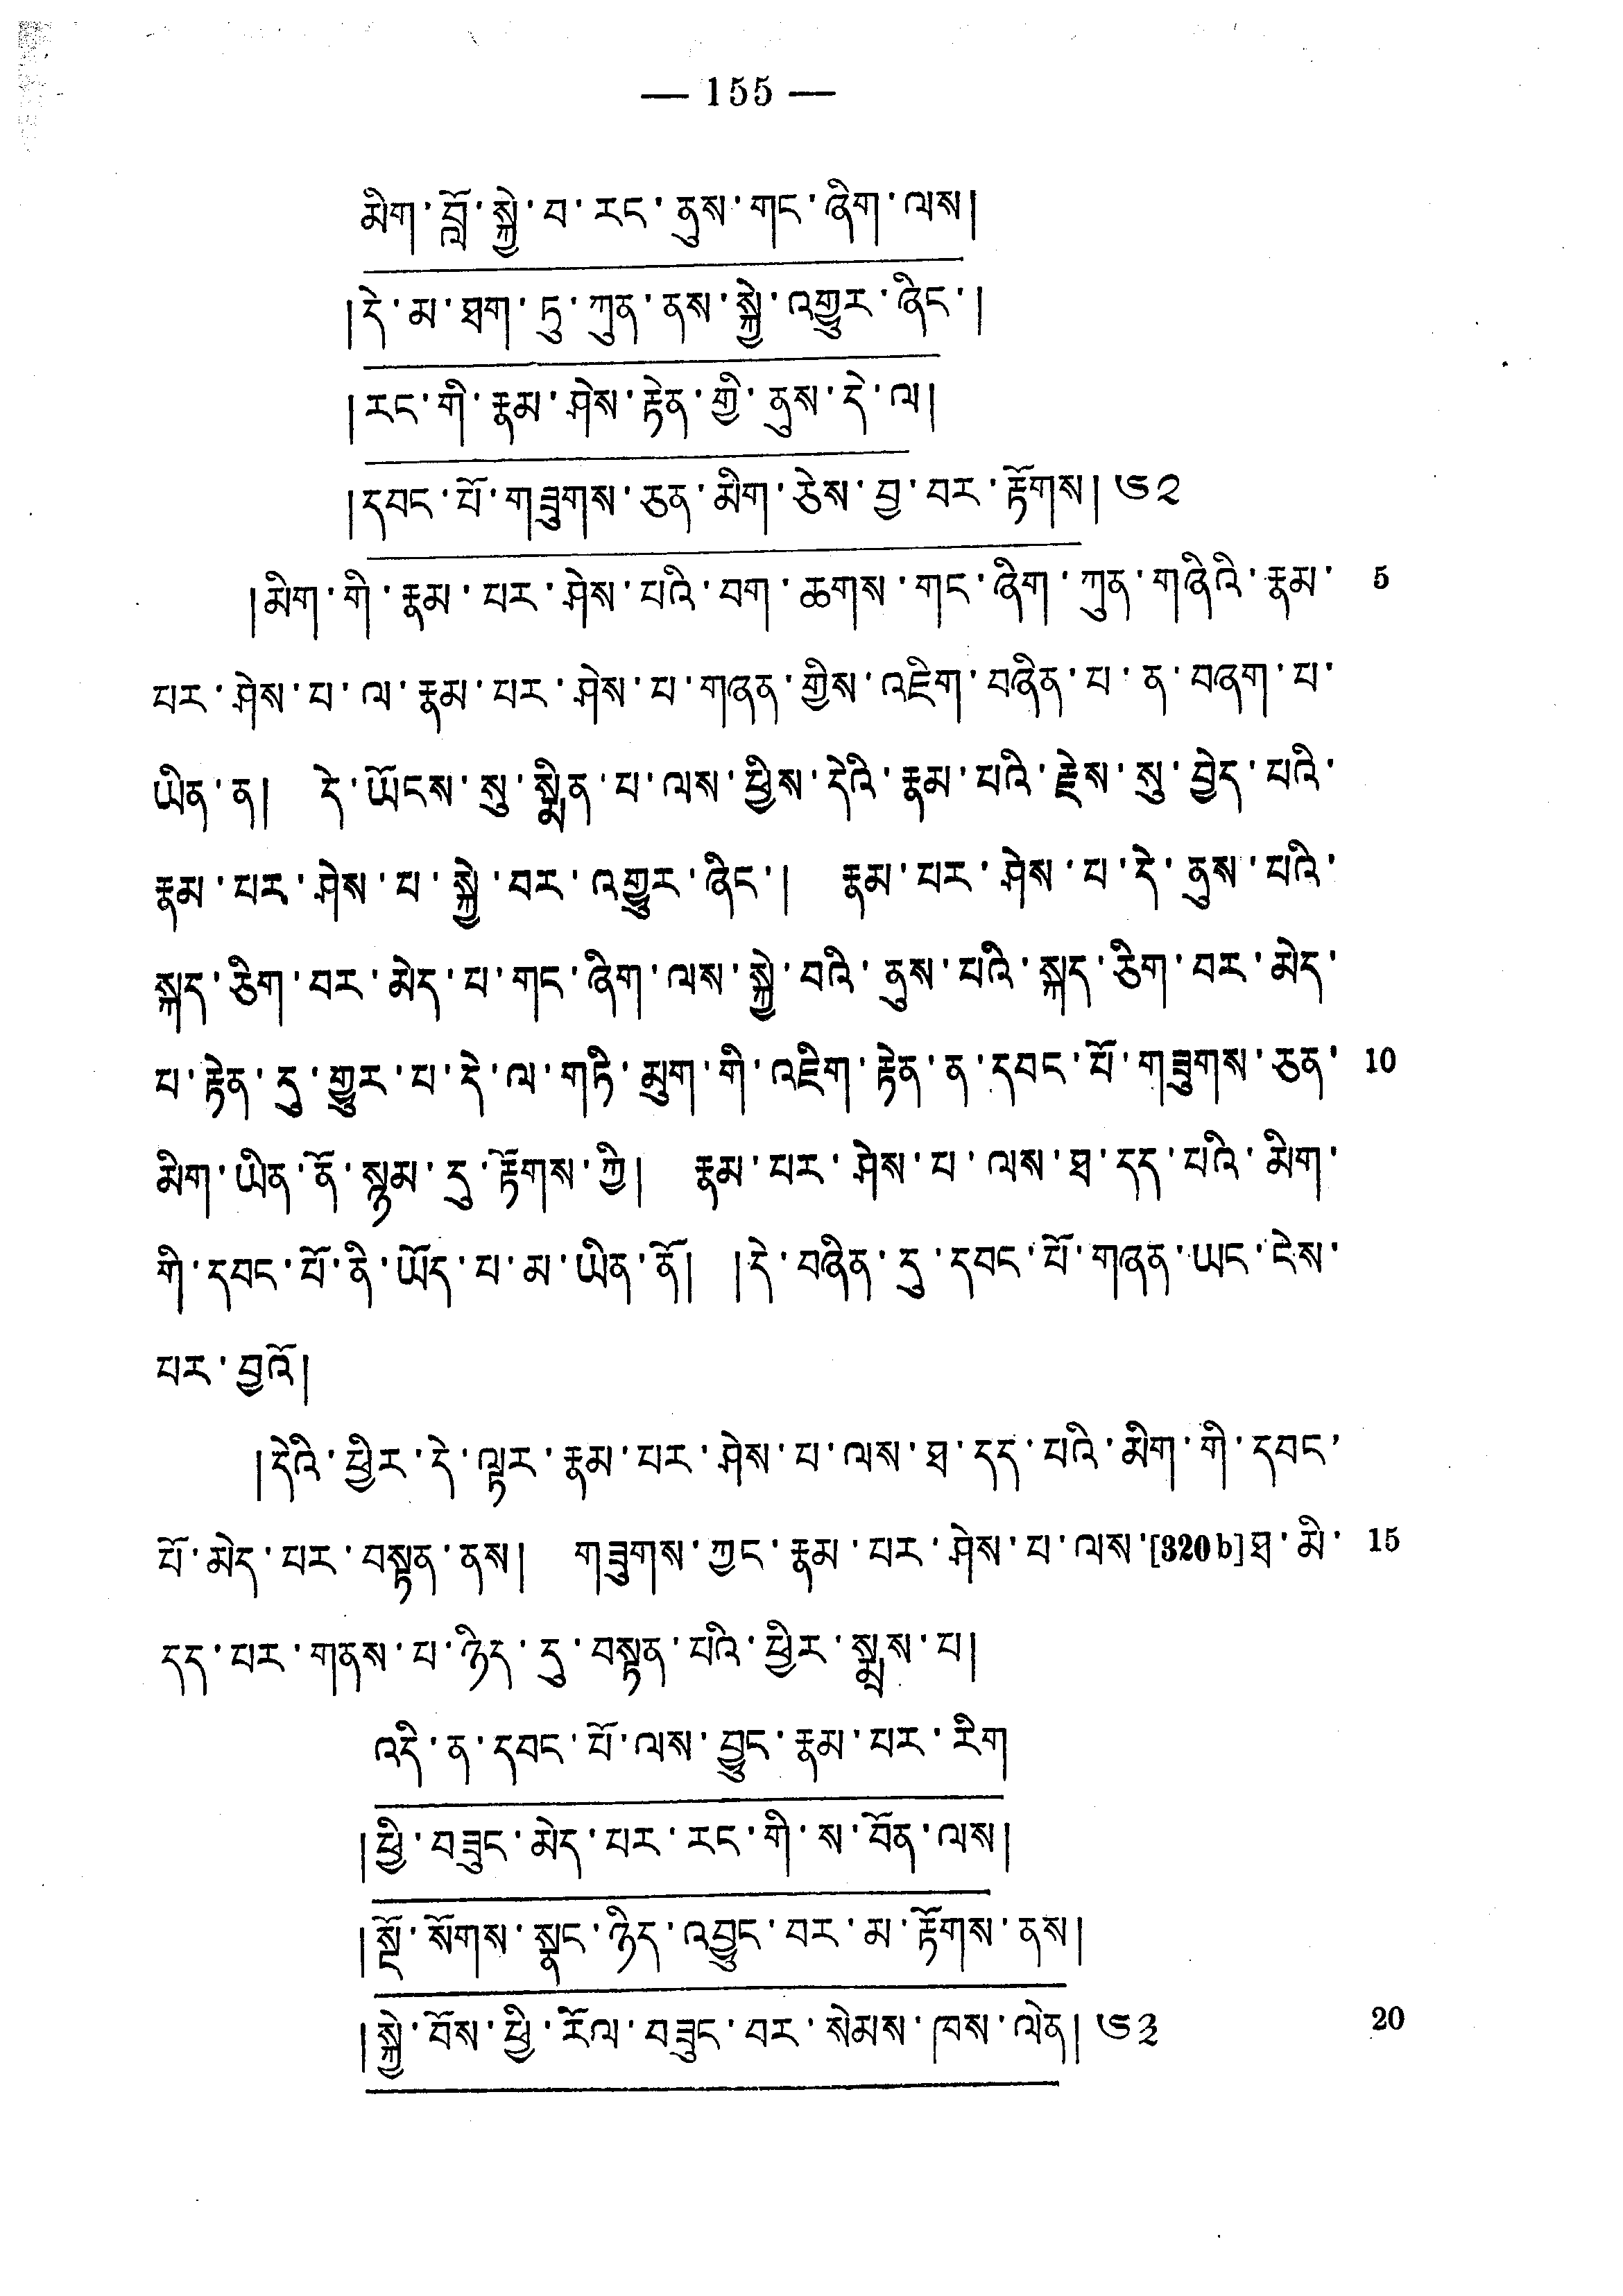 — 155 —
མིག་བློ་སྐྱེ་བ་རང་ནུས་གང་ཞིག་ལས།
།དེ་མ་ཐག་ཏུ་ཀུན་ནས་སྐྱེ་འགྱུར་ཞིང་།
།རང་གི་རྣམ་ཤེས་རྟེན་གྱི་ནུས་དེ་ལ།
།དབང་པོ་གཟུགས་ཅན་མིག་ཅེས་བྱ་བར་རྟོགས། ༦༢
།མིག་གི་རྣམ་པར་ཤེས་པའི་བག་ཆགས་གང་ཞིག་ཀུན་གཞིའི་རྣམ་ 5
པར་ཤེས་པ་ལ་རྣམ་པར་ཤེས་པ་གཞན་གྱིས་འཇིག་བཞིན་པ་ན་བཞག་པ་
ཡིན་ན། དེ་ཡོངས་སུ་སྨིན་པ་ལས་ཕྱིས་དེའི་རྣམ་པའི་རྗེས་སུ་བྱེད་པའི་
རྣམ་པར་ཤེས་པ་སྐྱེ་བར་འགྱུར་ཞིང་། རྣམ་པར་ཤེས་པ་དེ་ནུས་པའི་
སྐད་ཅིག་བར་མེད་པ་གང་ཞིག་ལས་སྐྱེ་བའི་ནུས་པའི་སྐད་ཅིག་བར་མེད་
པ་རྟེན་དུ་གྱུར་པ་དེ་ལ་གཏི་མུག་གི་འཇིག་རྟེན་ན་དབང་པོ་གཟུགས་ཅན་ 10
མིག་ཡིན་ནོ་སྙམ་དུ་རྟོགས་ཀྱི། རྣམ་པར་ཤེས་པ་ལས་ཐ་དད་པའི་མིག་
གི་དབང་པོ་ནི་ཡོད་པ་མ་ཡིན་ནོ། །དེ་བཞིན་དུ་དབང་པོ་གཞན་ཡང་ངེས་
པར་བྱའོ།
།དེའི་ཕྱིར་དེ་ལྟར་རྣམ་པར་ཤེས་པ་ལས་ཐ་དད་པའི་མིག་གི་དབང་
པོ་མེད་པར་བསྟན་ནས། གཟུགས་ཀྱང་རྣམ་པར་ཤེས་པ་ལས་[320b]ཐ་མི་ 15
དད་པར་གནས་པ་ཉིད་དུ་བསྟན་པའི་ཕྱིར་སྨྲས་པ།
འདི་ན་དབང་པོ་ལས་བྱུང་རྣམ་པར་རིག
།ཕྱི་བཟུང་མེད་པར་རང་གི་ས་བོན་ལས།
།སྔོ་སོགས་སྣང་ཉིད་འབྱུང་བར་མ་རྟོགས་ནས།
།སྐྱེ་བོས་ཕྱི་རོལ་བཟུང་བར་སེམས་ཁས་ལེན། ༦༣ 20